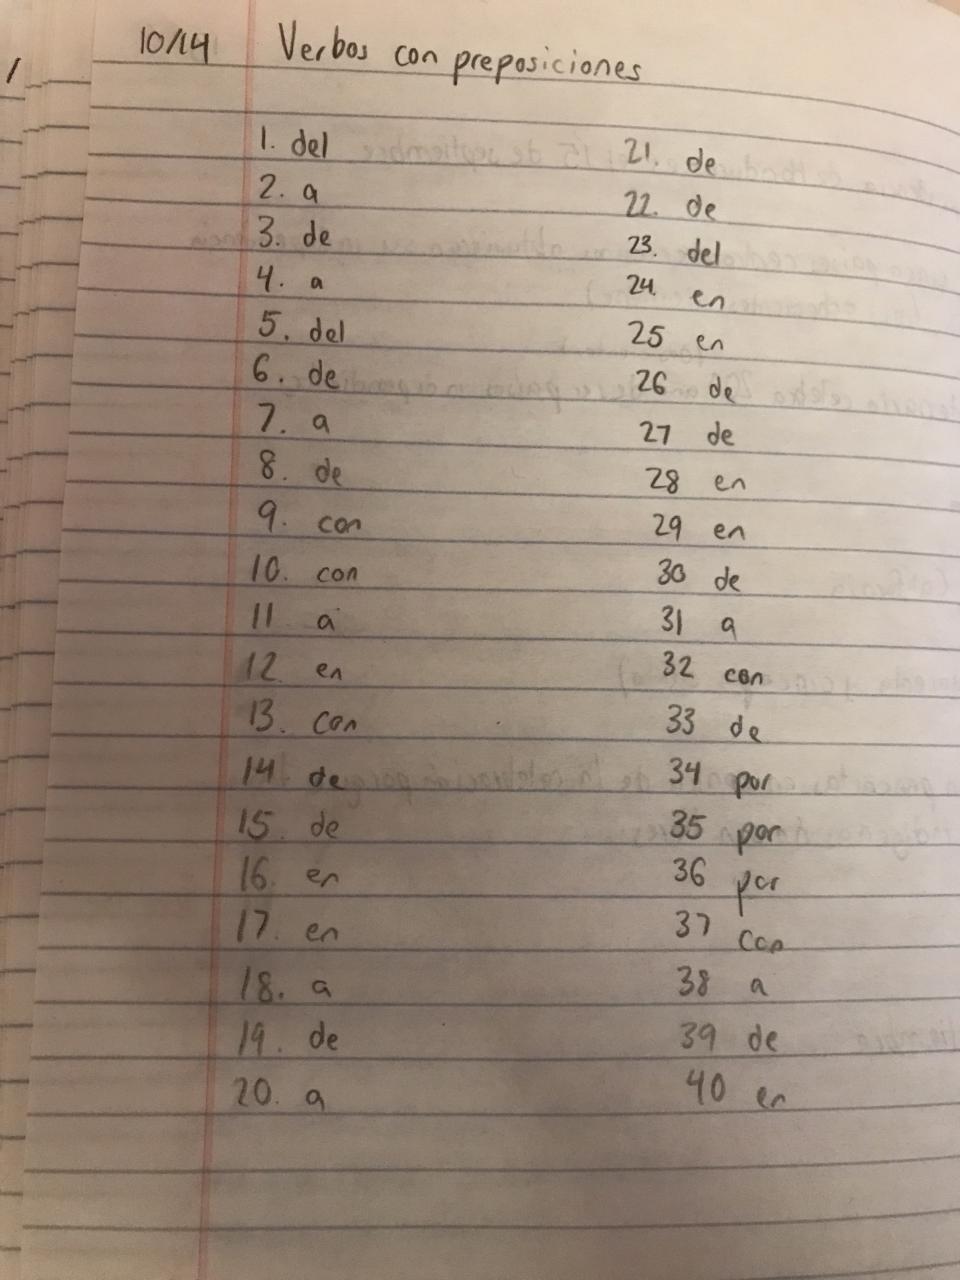 10/14 Verbos con preposiciones
1. del
2. a
3. de
4. a
5. del
6. de
7. a
8. de
9. con
10. con
11 a
12 en
13. con
14 de
15. de
16. en
17. en
18. a
19. de
20. a
21. de
22. de
23. del
24. en
25 en
26 de
27 de
28 en
29 en
30 de
31 a
32 con
33 de
34 por
35 por
36 por
37 con
38 a
39 de
40 en